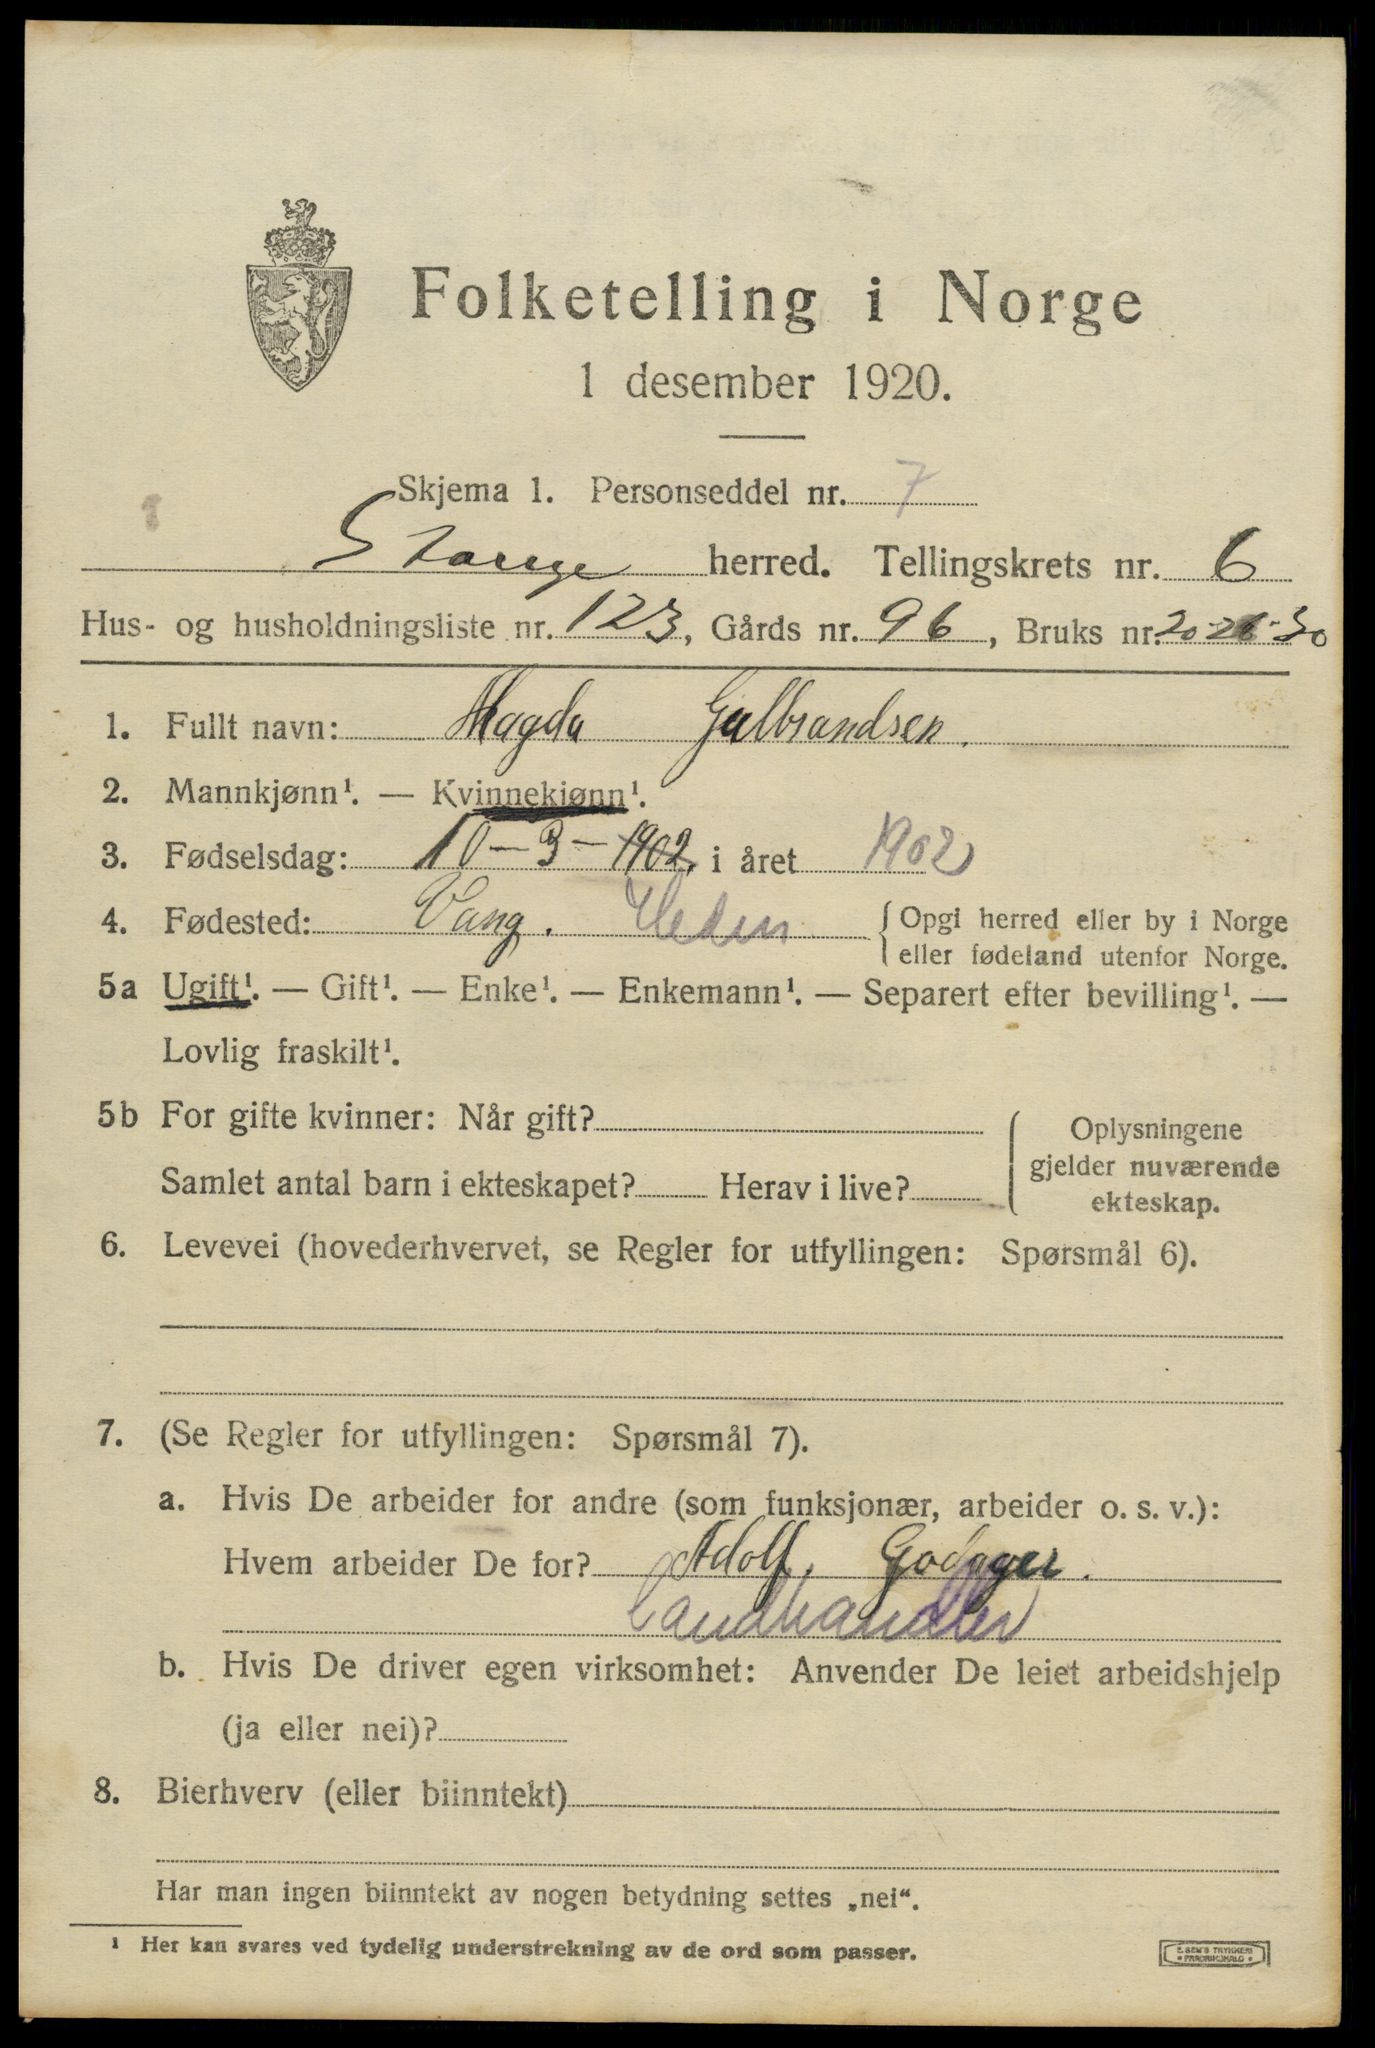 Folketelling i Norge
1 desember 1920.
Skjema 1. Personseddel nr. 7
Stange herred. Tellingskrets nr. 6
Hus- og husholdningsliste nr. 123, Gårds nr. 96, Bruks nr. 20-26-30
1. Fullt navn: Magda Gulbrandsen.
2. Mannkjønn¹. — Kvinnekjønn¹.
3. Fødselsdag: 10-3-1902. i året 1902
4. Fødested: Vang. Hedm { Opgi herred eller by i Norge
eller fødeland utenfor Norge.
5a Ugift¹. — Gift¹. — Enke¹. — Enkemann¹. — Separert efter bevilling¹. —
Lovlig fraskilt¹.
5b For gifte kvinner: Når gift?
Samlet antal barn i ekteskapet? Herav i live?
Oplysningene
gjelder nuværende
ekteskap.
6. Levevei (hovederhvervet, se Regler for utfyllingen: Spørsmål 6).
7. (Se Regler for utfyllingen: Spørsmål 7).
a. Hvis De arbeider for andre (som funksjonær, arbeider o. s. v.):
Hvem arbeider De for? Adolf. Godager.
Landhandler
b. Hvis De driver egen virksomhet: Anvender De leiet arbeidshjelp
(ja eller nei)?
8. Bierhverv (eller biinntekt)
Har man ingen biinntekt av nogen betydning settes „nei“.
¹ Her kan svares ved tydelig understrekning av de ord som passer.
E. SEM'S TRYKKERI
FREDRIKSHALD